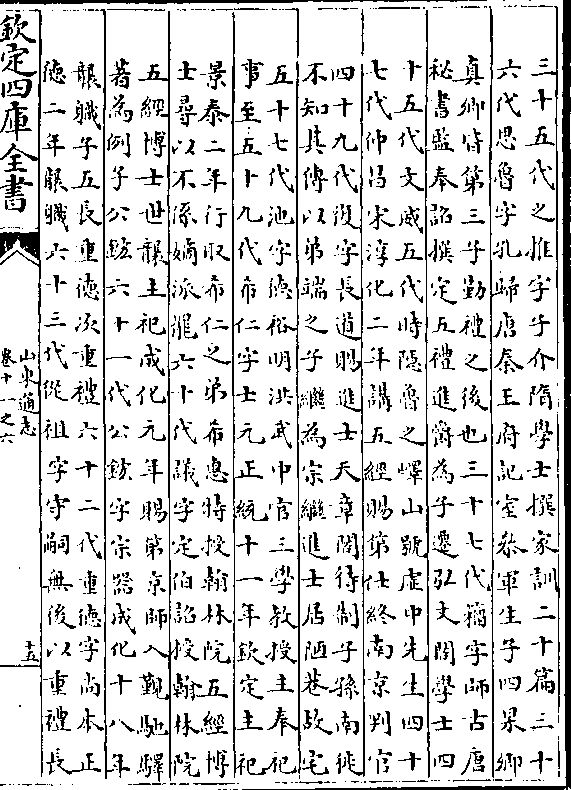 三十五代之推字子介隋學士撰家訓二十篇三十
六代思魯字孔歸唐秦王府記室叅軍生子四杲卿
真卿皆第三子勤禮之後也三十七代籀字師古唐
秘書監奉詔撰定五禮進爵為子遷弘文閣學士四
十五代文威五代時隱魯之嶧山號虚中先生四十
七代仲昌宋淳化二年講五經賜第仕終南京判官
四十九代復字長道賜進士天章閣待制子孫南徙
不知其傳以弟端之子繼為宗繼進士居陋巷故宅
五十七代池字德裕明洪武中官三學教授主奉祀
事至五十九代希仁字士元正統十一年欽定主祀
景泰二年行取希仁之弟希惠特授翰林院五經博
士尋以不係嫡派罷六十代議字定伯詔授翰林院
五經博士世襲主祀成化元年賜第京師入覲馳驛
著為例子公鋐六十一代公鋐字宗器成化十八年
襲職子五長重德次重禮六十二代重德字尚本正
德二年襲職六十三代從祖字守嗣無後以重禮長
欽定四庫全書
山東通志
卷十一之六
十五